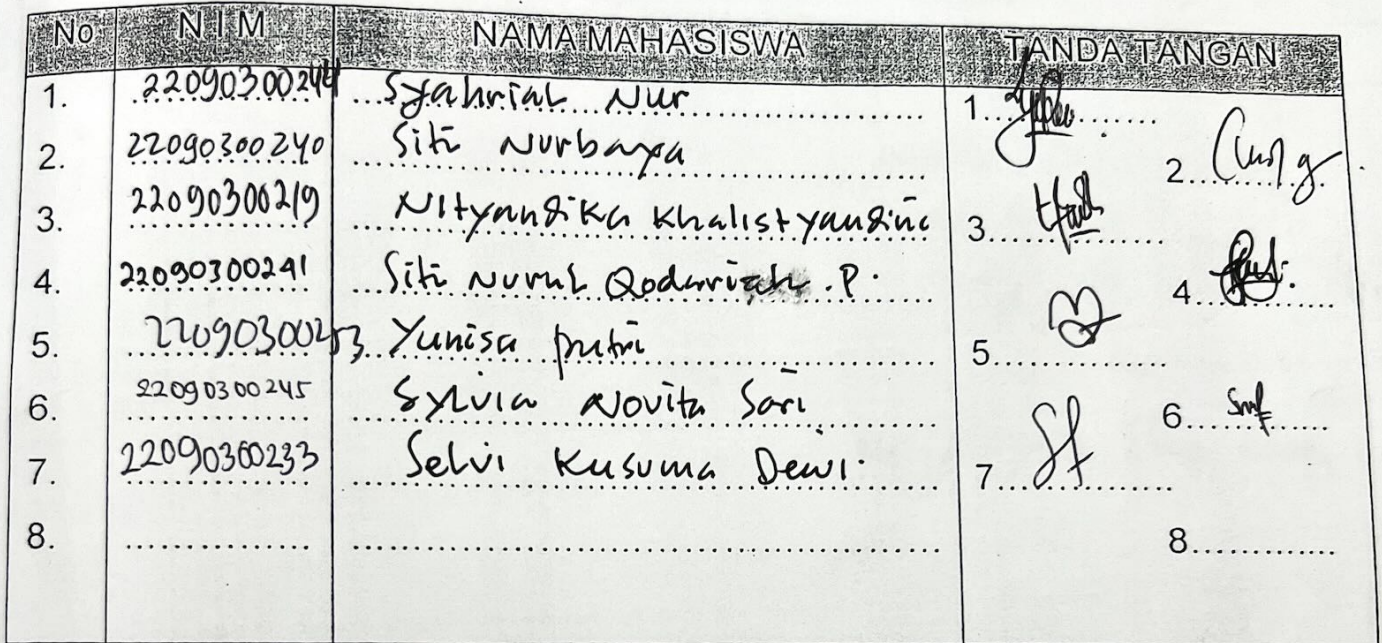 No NIM NAMA MAHASISWA TANDA TANGAN
1. 22090300244 Syahrial Nur 1
2. 22090300240 Siti Nurbaya 2
3. 22090300219 Nityandika Khalistyandina 3
4. 22090300241 Siti Nurul Qodariah P. 4
5. 22090300253 Yunisa putri 5
6. 22090300245 Sylvia Novita Sari 6
7. 22090300233 Selvi Kusuma Dewi 7
8. 8